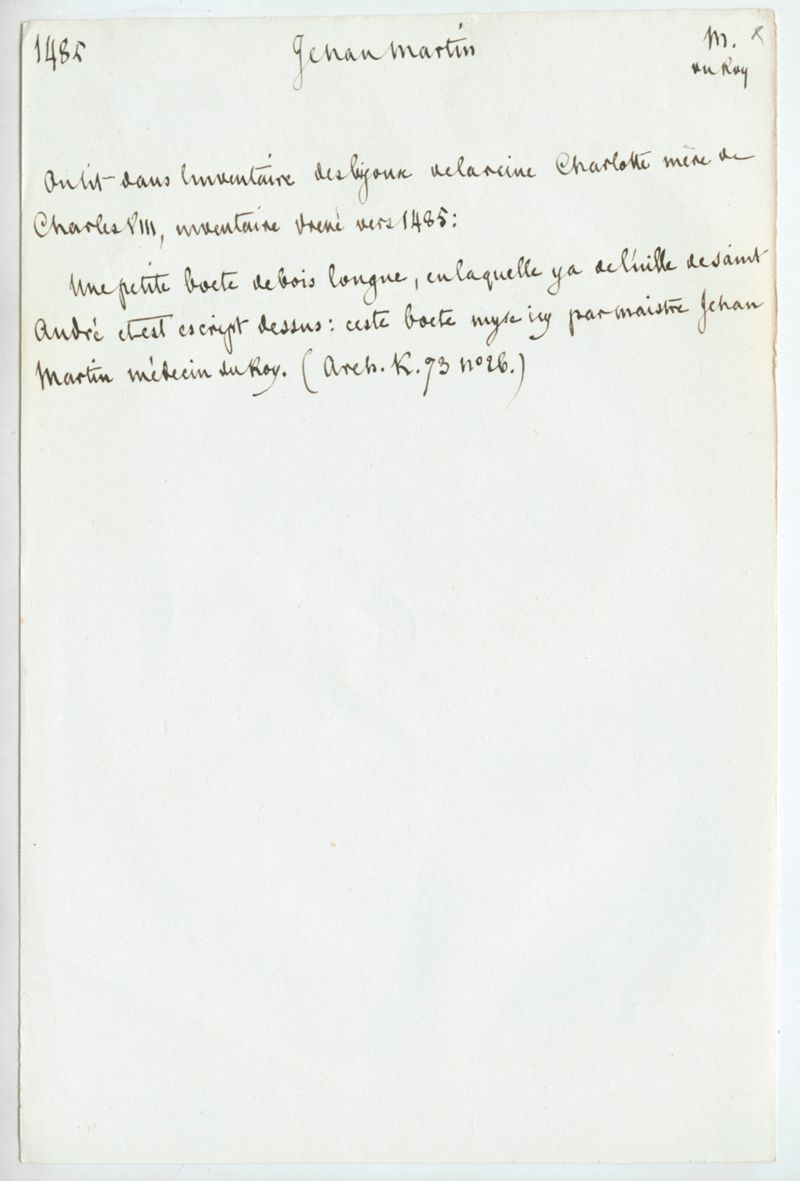 1485 Jehan Martin M. x
du Roy
On lit dans l'inventaire des bijoux de la reine Charlotte mère de
Charles VIII, inventaire dressé vers 1485:
Une petite boete de bois longue, en laquelle y a de l'uille de saint
André et est escript dessus: ceste boete myse icy par maistre Jehan
Martin médecin du Roy. (Arch. K. 73 no 26.)